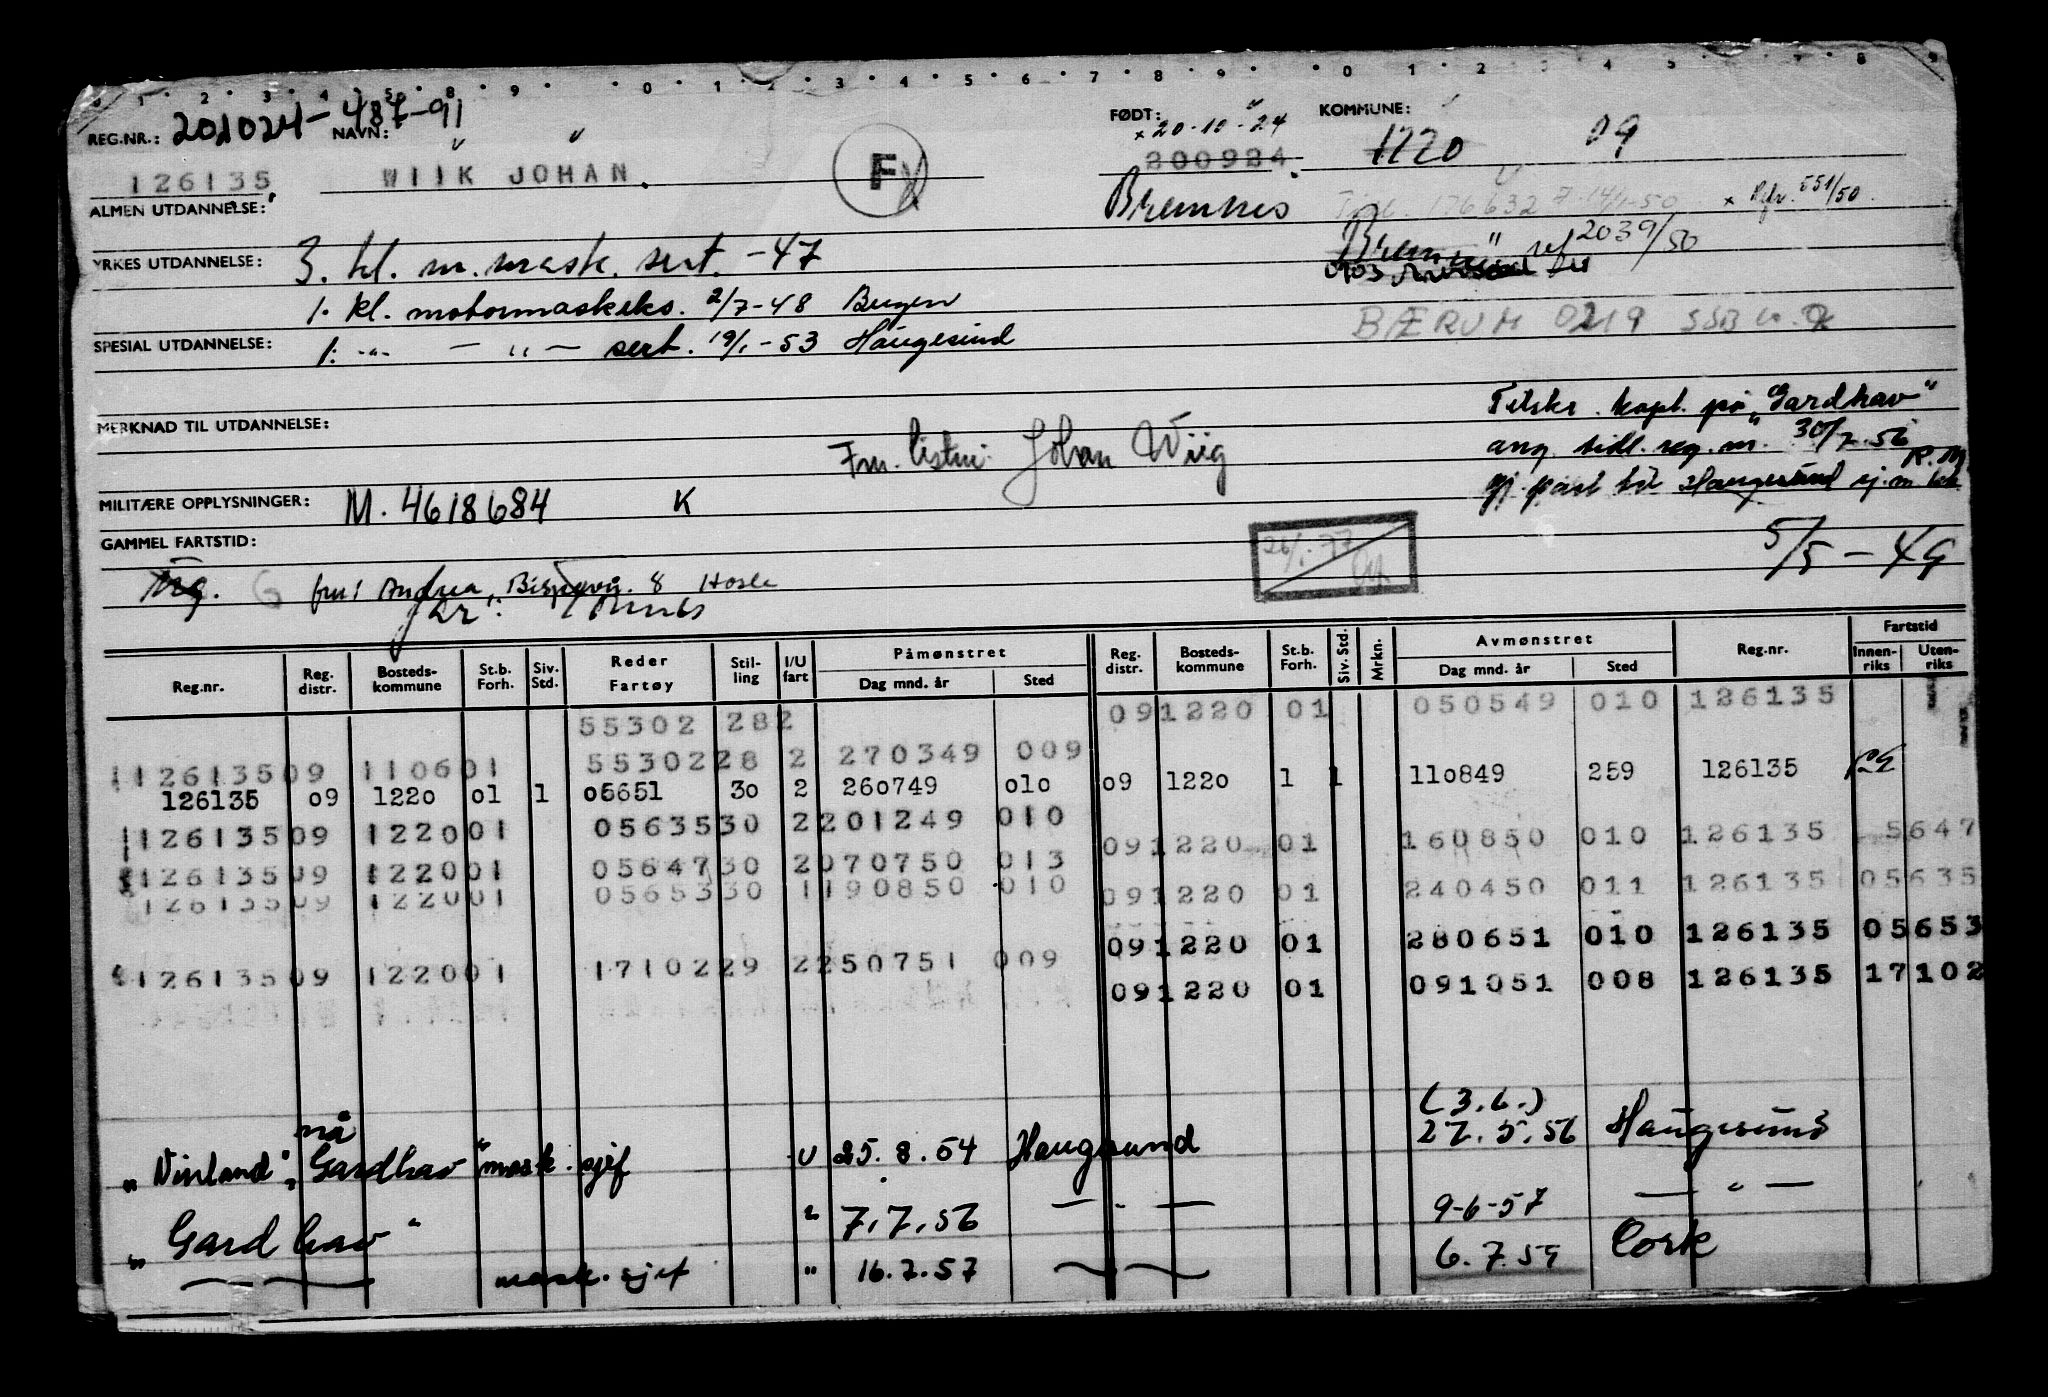 0 1 2 3 4 5 8 9 0 1 2 3 4 5 6 7 8 9 0 1 2 3 4 5 7 8 9
REG.NR.: 201024-487-91 NAVN: FØDT: × 20-10-24 KOMMUNE:
126135 WIIK JOHAN. F 200924 1220 09
ALMEN UTDANNELSE: Bremnes 176632 14/1-50 × Ref. 551/50
YRKES UTDANNELSE: 3. kl. m.mask. sert. -47 ref 2039/50
0103
1. kl. motormaskeks. 2/7-48 Bergen BÆRUM 0219 SSB
SPESIAL UTDANNELSE: 1. -"- — " — sert. 19/1-53 Haugesund
MERKNAD TIL UTDANNELSE: Tilskr. kapt. på "Gardhav"
Fm. listu: Johan Wiig ang. tidl. reg. nr. 30/7.56
MILITÆRE OPPLYSNINGER: M. 4618684 K gj. part til Haugesund
GAMMEL FARTSTID: 26/1-77 5/5-49
G fru: Andrea, 8 Hosle
Reg.nr. Reg. distr. Bosteds-kommune St.b. Forh. Siv. Std. Reder Fartøy Stil-ling I/U fart Påmønstret Dag mnd. år Sted Reg. distr. Bosteds-kommune St.b. Forh. Siv. Std. Mrkn. Avmønstret Dag mnd. år Sted Reg.nr. Fartstid Innen-riks Uten-riks
55302 28 2 09 1220 01 050549 010 126135
1126135 09 1106 01 55302 28 2 270349 009
126135 09 1220 01 1 05651 30 2 260749 010 09 1220 1 1 110849 259 126135
1126135 09 1220 01 05635 30 2 201249 010
09 1220 01 160850 010 126135 5647
126135 09 1220 01 05647 30 2 070750 013
126135 09 1220 01 05653 30 1 190850 010 09 1220 01 240450 011 126135 05635
09 1220 01 280651 010 126135 05653
126135 09 1220 01 17102 29 2 250751 009
09 1220 01 091051 008 126135 17102
(3.6.)
"Vinland", nå "Gardhav" mask. sjef U 25.8.54 Haugesund 27.5.56 Haugesund
"Gardhav" " 7.7.56 — " — 9-6-57 — " —
mask. sjef " 16.7.57 6.7.59 Cork